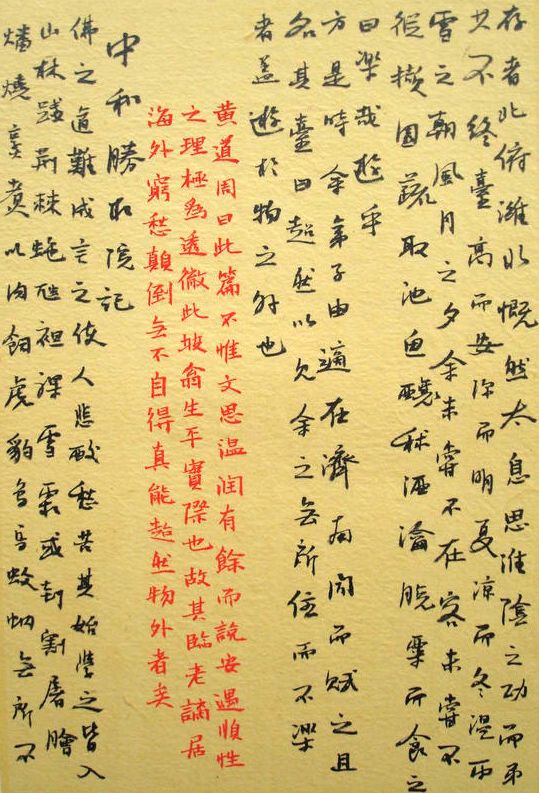 存者北俯濰水慨然太息思淮陰之功而弔
其不終臺高而安深而明夏涼而冬溫雨
雪之朝風月之夕余未嘗不在客未嘗不
從擷園蔬取池魚釀秫酒瀹脫粟而食之
曰樂哉遊乎
方是時余弟子由適在濟南聞而賦之且
名其臺曰超然以見余之無所往而不樂
者蓋遊於物之外也
黃道周曰此篇不惟文思溫潤有餘而說安遇順性
之理極為透徹此坡翁生平實際也故其臨老謫居
海外窮愁顛倒無不自得真能超然物外者矣
中和勝相院記
佛之道難成言之使人悲酸愁苦其始學之皆入
山林踐荊棘蛇虺袒裸雪霜或刲割屠膾
燔燒烹煮以肉飼虎豹鳥烏蚊蚋無所不